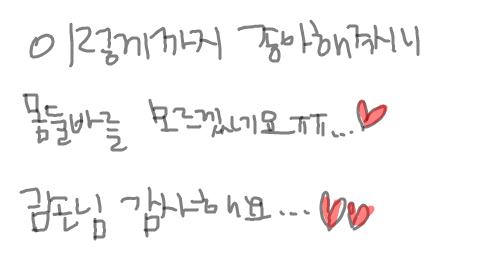 이렇게까지 좋아해주시니
몸둘바를 모르겠네요ㅠㅠ...♥
금손님 감사해요...♥♥